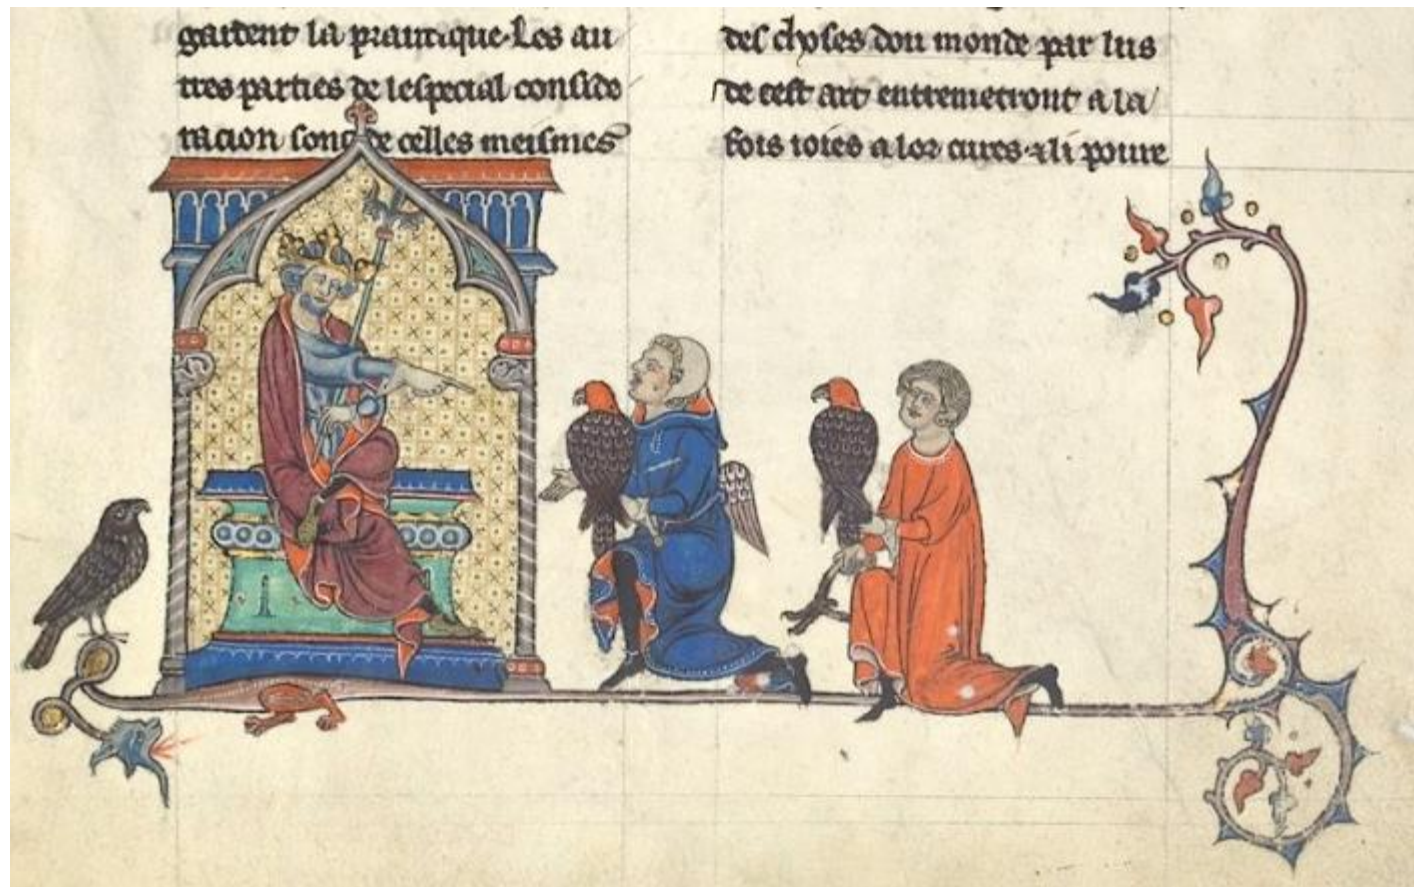 gardent la prautique. Les au
tres parties de lespecial conside
racion sont de celles meismes
des choses dou monde par lus
de cest art entremetront a la
fois ioies a lor cures. a li poure